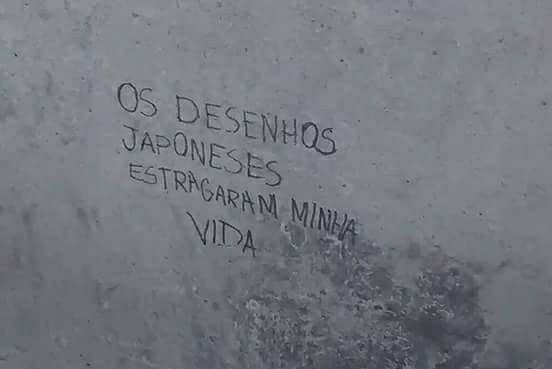 OS DESENHOS
JAPONESES
ESTRAGARAM MINHA
VIDA